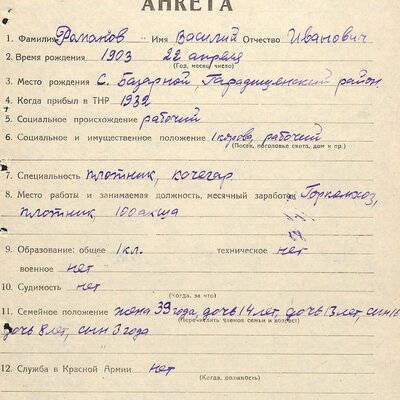 АНКЕТА
1. Фамилия Романов Имя Василий Отчество Иванович
2. Время рождения 1903 22 апреля
(Год, месяц, число)
3. Место рождения С. Базарной, Гарадищенский район
4. Когда прибыл в ТНР 1932
5. Социальное происхождение рабочий
6. Социальное и имущественное положение 1 корова, рабочий
(Посев, поголовье скота, дом и пр.)
7. Специальность плотник, кочегар
8. Место работы и занимаемая должность, месячный заработок Горкомхоз,
плотник 100 акша
9. Образование: общее 1 кл. техническое нет
военное нет
10. Судимость нет
(Когда, за что)
11. Семейное положение жена 39 года, дочь 14 лет, дочь 13 лет, сын 11
(Перечислить членов семьи и возраст)
дочь 8 лет, сын 3 года
12. Служба в Красной Армии нет
(Когда, должность)